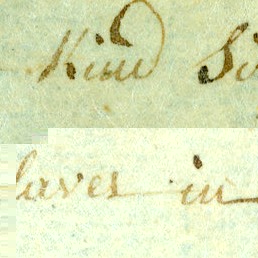 Kind Si
laves in